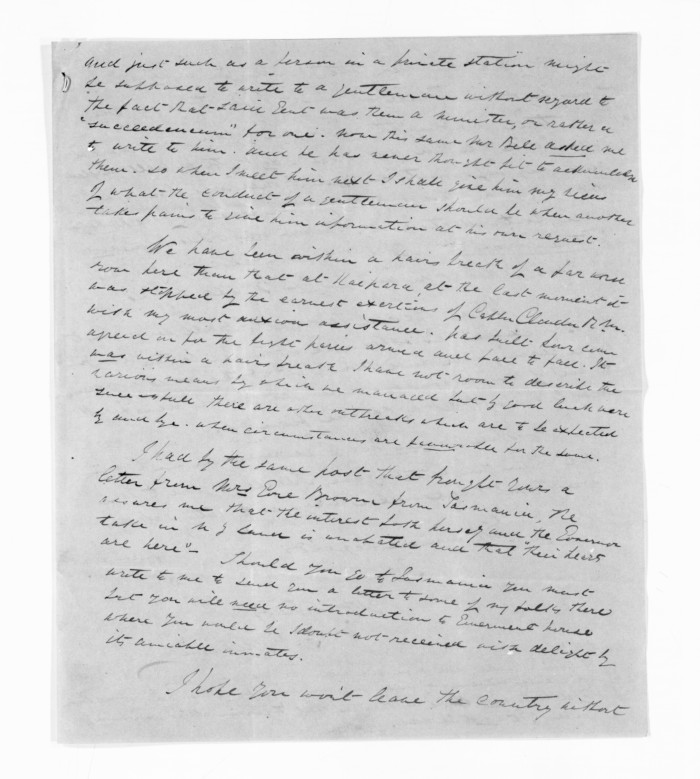 and just such as a person in a private station might
be supposed to write to a gentleman without regard to
the fact that said Gent was then a minister, or rather a
"succeedeneum" for one. Now this same Mr Bell asked me
to write to him. and he has never thought fit to acknowledge
them. so when I meet him next I shall give him my views
of what the conduct of a gentleman should be when another
takes pains to give him information at his own request.
We have been within a hairs breath of a far worse
row here than that at Kaipara, at the last moment it
was stopped by the earnest exertions of Clendon R.M.
with my most anxious assistance. built four
agreed on for the fight parties armed and face to face. It
was within a hairs breath I have not room to describe the
various means by which we managed but by good luck were
there are other outbreaks which are to be expected
by and bye. when circumstances are for the same.
I had by the same post that brought yours a
letter from Mrs Gore Browne from Tasmania, She
assures me that the interest both herself and the Governor
take in N Z land is unabated and that "their hearts
are here" – Should you go to Tasmania you must
write to me to send you a letter to some of my folks there
but you will need no introduction to Goverment house
where you would be I doubt not received with delight by
its amiable inmates.
I hope you wont leave the country without